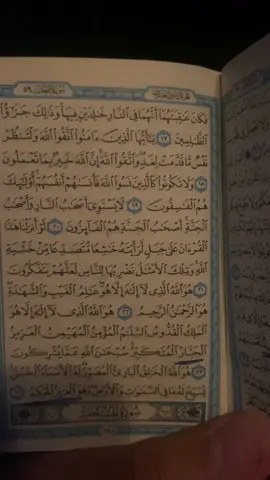 فَكَانَ عَٰقِبَتَهُمَآ أَنَّهُمَا فِى ٱلنَّارِ خَٰلِدَيْنِ فِيهَا ۚ وَذَٰلِكَ جَزَٰٓؤُا۟
ٱلظَّٰلِمِينَ ١٧ يَٰٓأَيُّهَا ٱلَّذِينَ ءَامَنُوا۟ ٱتَّقُوا۟ ٱللَّهَ وَلْتَنظُرْ
نَفْسٌ مَّا قَدَّمَتْ لِغَدٍ ۖ وَٱتَّقُوا۟ ٱللَّهَ ۚ إِنَّ ٱللَّهَ خَبِيرٌۢ بِمَا تَعْمَلُونَ
١٨ وَلَا تَكُونُوا۟ كَٱلَّذِينَ نَسُوا۟ ٱللَّهَ فَأَنسَىٰهُمْ أَنفُسَهُمْ ۚ أُو۟لَٰٓئِكَ
هُمُ ٱلْفَٰسِقُونَ ١٩ لَا يَسْتَوِىٓ أَصْحَٰبُ ٱلنَّارِ وَأَصْحَٰبُ
ٱلْجَنَّةِ ۚ أَصْحَٰبُ ٱلْجَنَّةِ هُمُ ٱلْفَآئِزُونَ ٢٠ لَوْ أَنزَلْنَا هَٰذَا
ٱلْقُرْءَانَ عَلَىٰ جَبَلٍ لَّرَأَيْتَهُۥ خَٰشِعًا مُّتَصَدِّعًا مِّنْ خَشْيَةِ
ٱللَّهِ ۚ وَتِلْكَ ٱلْأَمْثَٰلُ نَضْرِبُهَا لِلنَّاسِ لَعَلَّهُمْ يَتَفَكَّرُونَ
٢١ هُوَ ٱللَّهُ ٱلَّذِى لَآ إِلَٰهَ إِلَّا هُوَ ۖ عَٰلِمُ ٱلْغَيْبِ وَٱلشَّهَٰدَةِ ۖ
هُوَ ٱلرَّحْمَٰنُ ٱلرَّحِيمُ ٢٢ هُوَ ٱللَّهُ ٱلَّذِى لَآ إِلَٰهَ إِلَّا هُوَ
ٱلْمَلِكُ ٱلْقُدُّوسُ ٱلسَّلَٰمُ ٱلْمُؤْمِنُ ٱلْمُهَيْمِنُ ٱلْعَزِيزُ
ٱلْجَبَّارُ ٱلْمُتَكَبِّرُ ۚ سُبْحَٰنَ ٱللَّهِ عَمَّا يُشْرِكُونَ
٢٣ هُوَ ٱللَّهُ ٱلْخَٰلِقُ ٱلْبَارِئُ ٱلْمُصَوِّرُ ۖ لَهُ ٱلْأَسْمَآءُ ٱلْحُسْنَىٰ ۚ
يُسَبِّحُ لَهُۥ مَا فِى ٱلسَّمَٰوَٰتِ وَٱلْأَرْضِ ۖ وَهُوَ ٱلْعَزِيزُ ٱلْحَكِيمُ
سُورَةُ ٱلْمُمْتَحَنَةِ